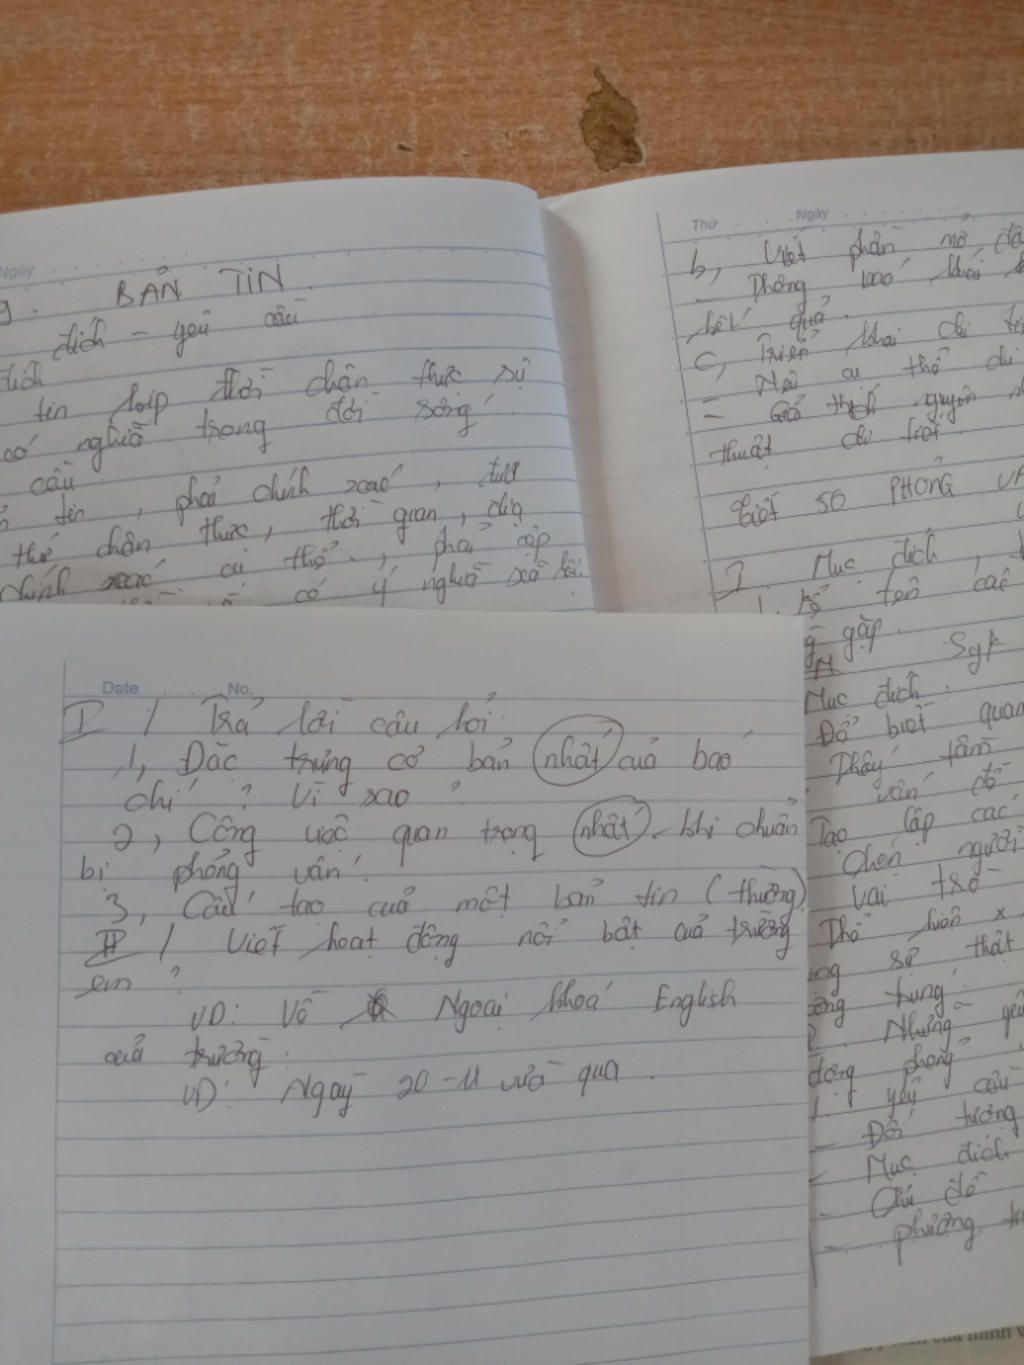 Ngày
g. BẢN TIN
đích - yêu cầu
đích
tin kịp thời chân thực sự
có nghĩa trong đời sống
cầu
tin, phải chính xác,
thế chân thực, thời gian, địa
chính xác cụ thể., phải cập
có ý nghĩa xã hội.
Thứ Ngày
b, Viết phần mở đầ
- Thông báo khái
kết quả.
c, Triển khai chi ti
- Nêu cụ thể chi
- Giải thích nguyên
thuật chi tiết
Tiết 50 PHỎNG V
I Mục đích,
1. Kể tên các
gặp.
Sgk
Mục đích.
Để biết quan
Thấy tầm
vấn đề
Tạo lập các
Chọn người
Vai trò
Thể hiện x
ng sự thật
công trung.
2. Những yê
động phỏng
1. yêu cầu
- Đối tượng
- Mục đích
- Chủ đề
- phương t
Date No.
I / Trả lời câu hỏi.
1, Đặc trưng cơ bản nhất của báo
chí ? Vì sao ?
2, Công việc quan trọng nhất. khi chuẩn
bị phỏng vấn.
3, Cấu tạo của một bản tin (thường)
II / Viết hoạt động nổi bật của trường
em ?
VD: Về Ngoại khoá English
của trường.
VD: Ngày 20-11 vừa qua.